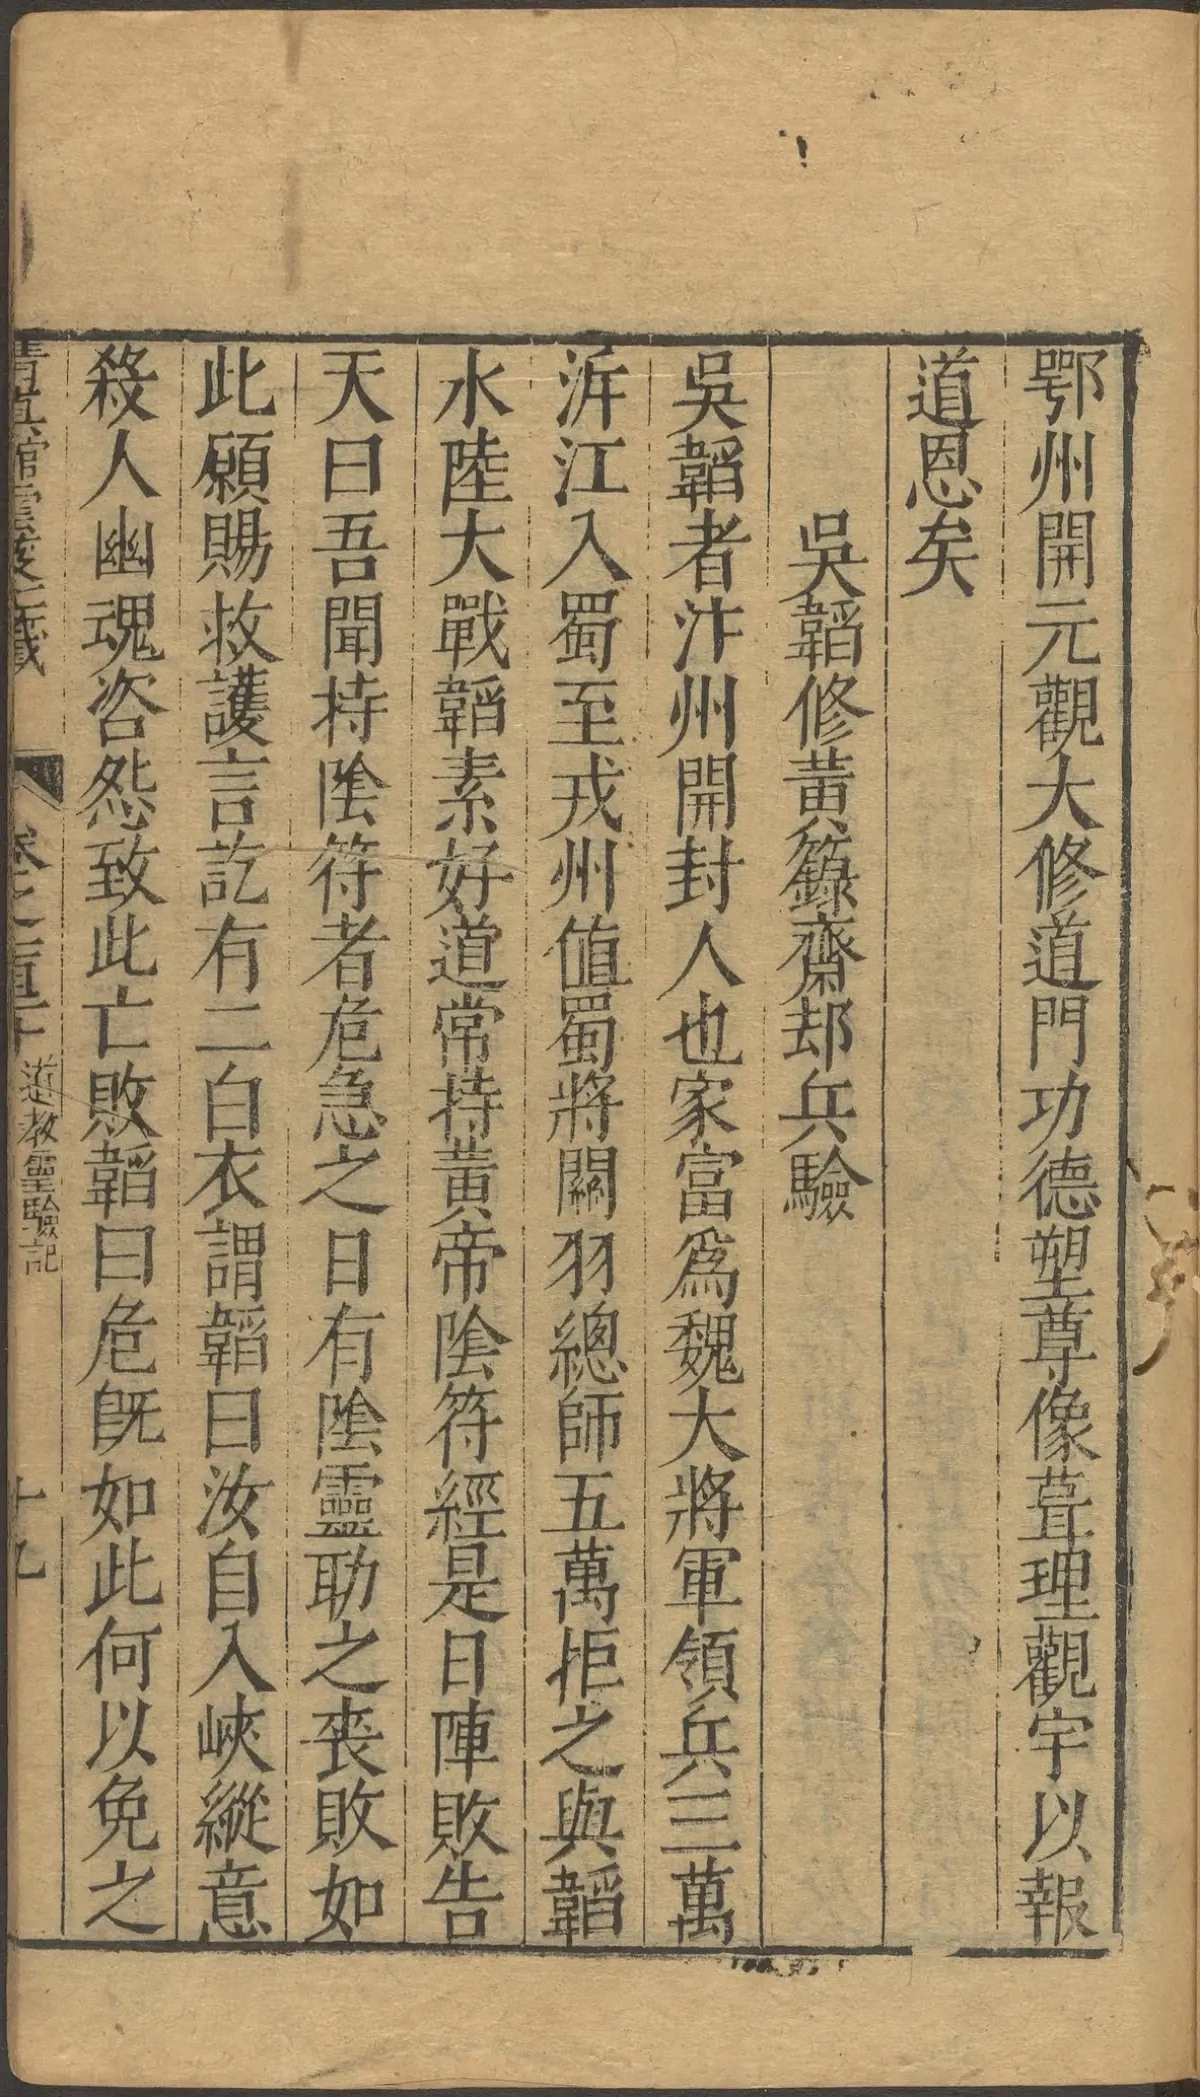 鄂州開元觀大修道門功德塑尊像葺理觀宇以報
道恩矣
吳韜修黃籙齋却兵驗
吳韜者汴州開封人也家富爲魏大將軍領兵三萬
泝江入蜀至戎州值蜀將關羽總師五萬拒之與韜
水陸大戰韜素好道常持黃帝陰符經是日陣敗告
天曰吾聞持陰符者危急之日有陰靈助之喪敗如
此願賜救護言訖有二白衣謂韜曰汝自入峽縱意
殺人幽魂咨怨致此亡敗韜曰危旣如此何以免之
清真館雲笈七籤
卷之一百二十
道教靈驗記
十九